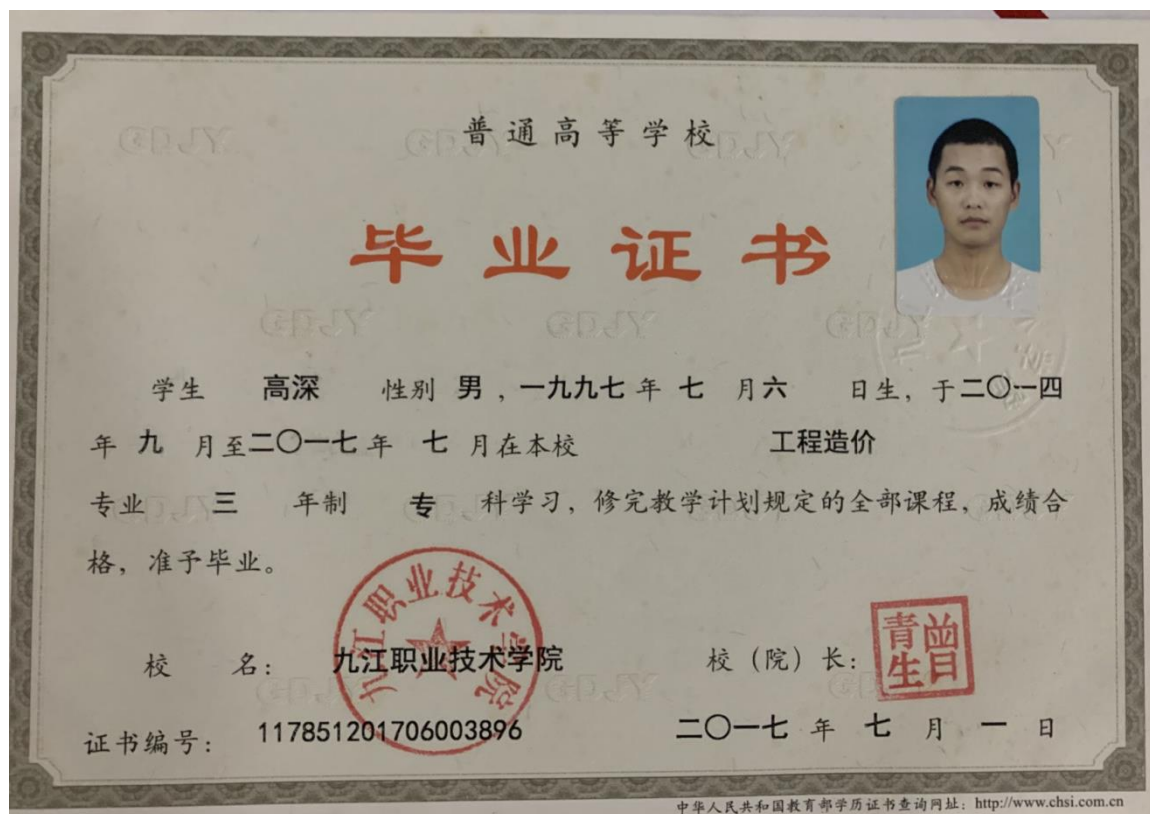 普通高等学校
毕业证书
学生 高深 性别 男，一九九七年 七 月六 日生，于二〇一四
年 九 月至二〇一七年 七 月在本校 工程造价
专业 三 年制 专 科学习，修完教学计划规定的全部课程，成绩合
格，准予毕业。
九江职业技术学院
校 名：九江职业技术学院 校（院）长：曾青生
证书编号：117851201706003896 二〇一七 年 七 月 一 日
中华人民共和国教育部学历证书查询网址：http://www.chsi.com.cn